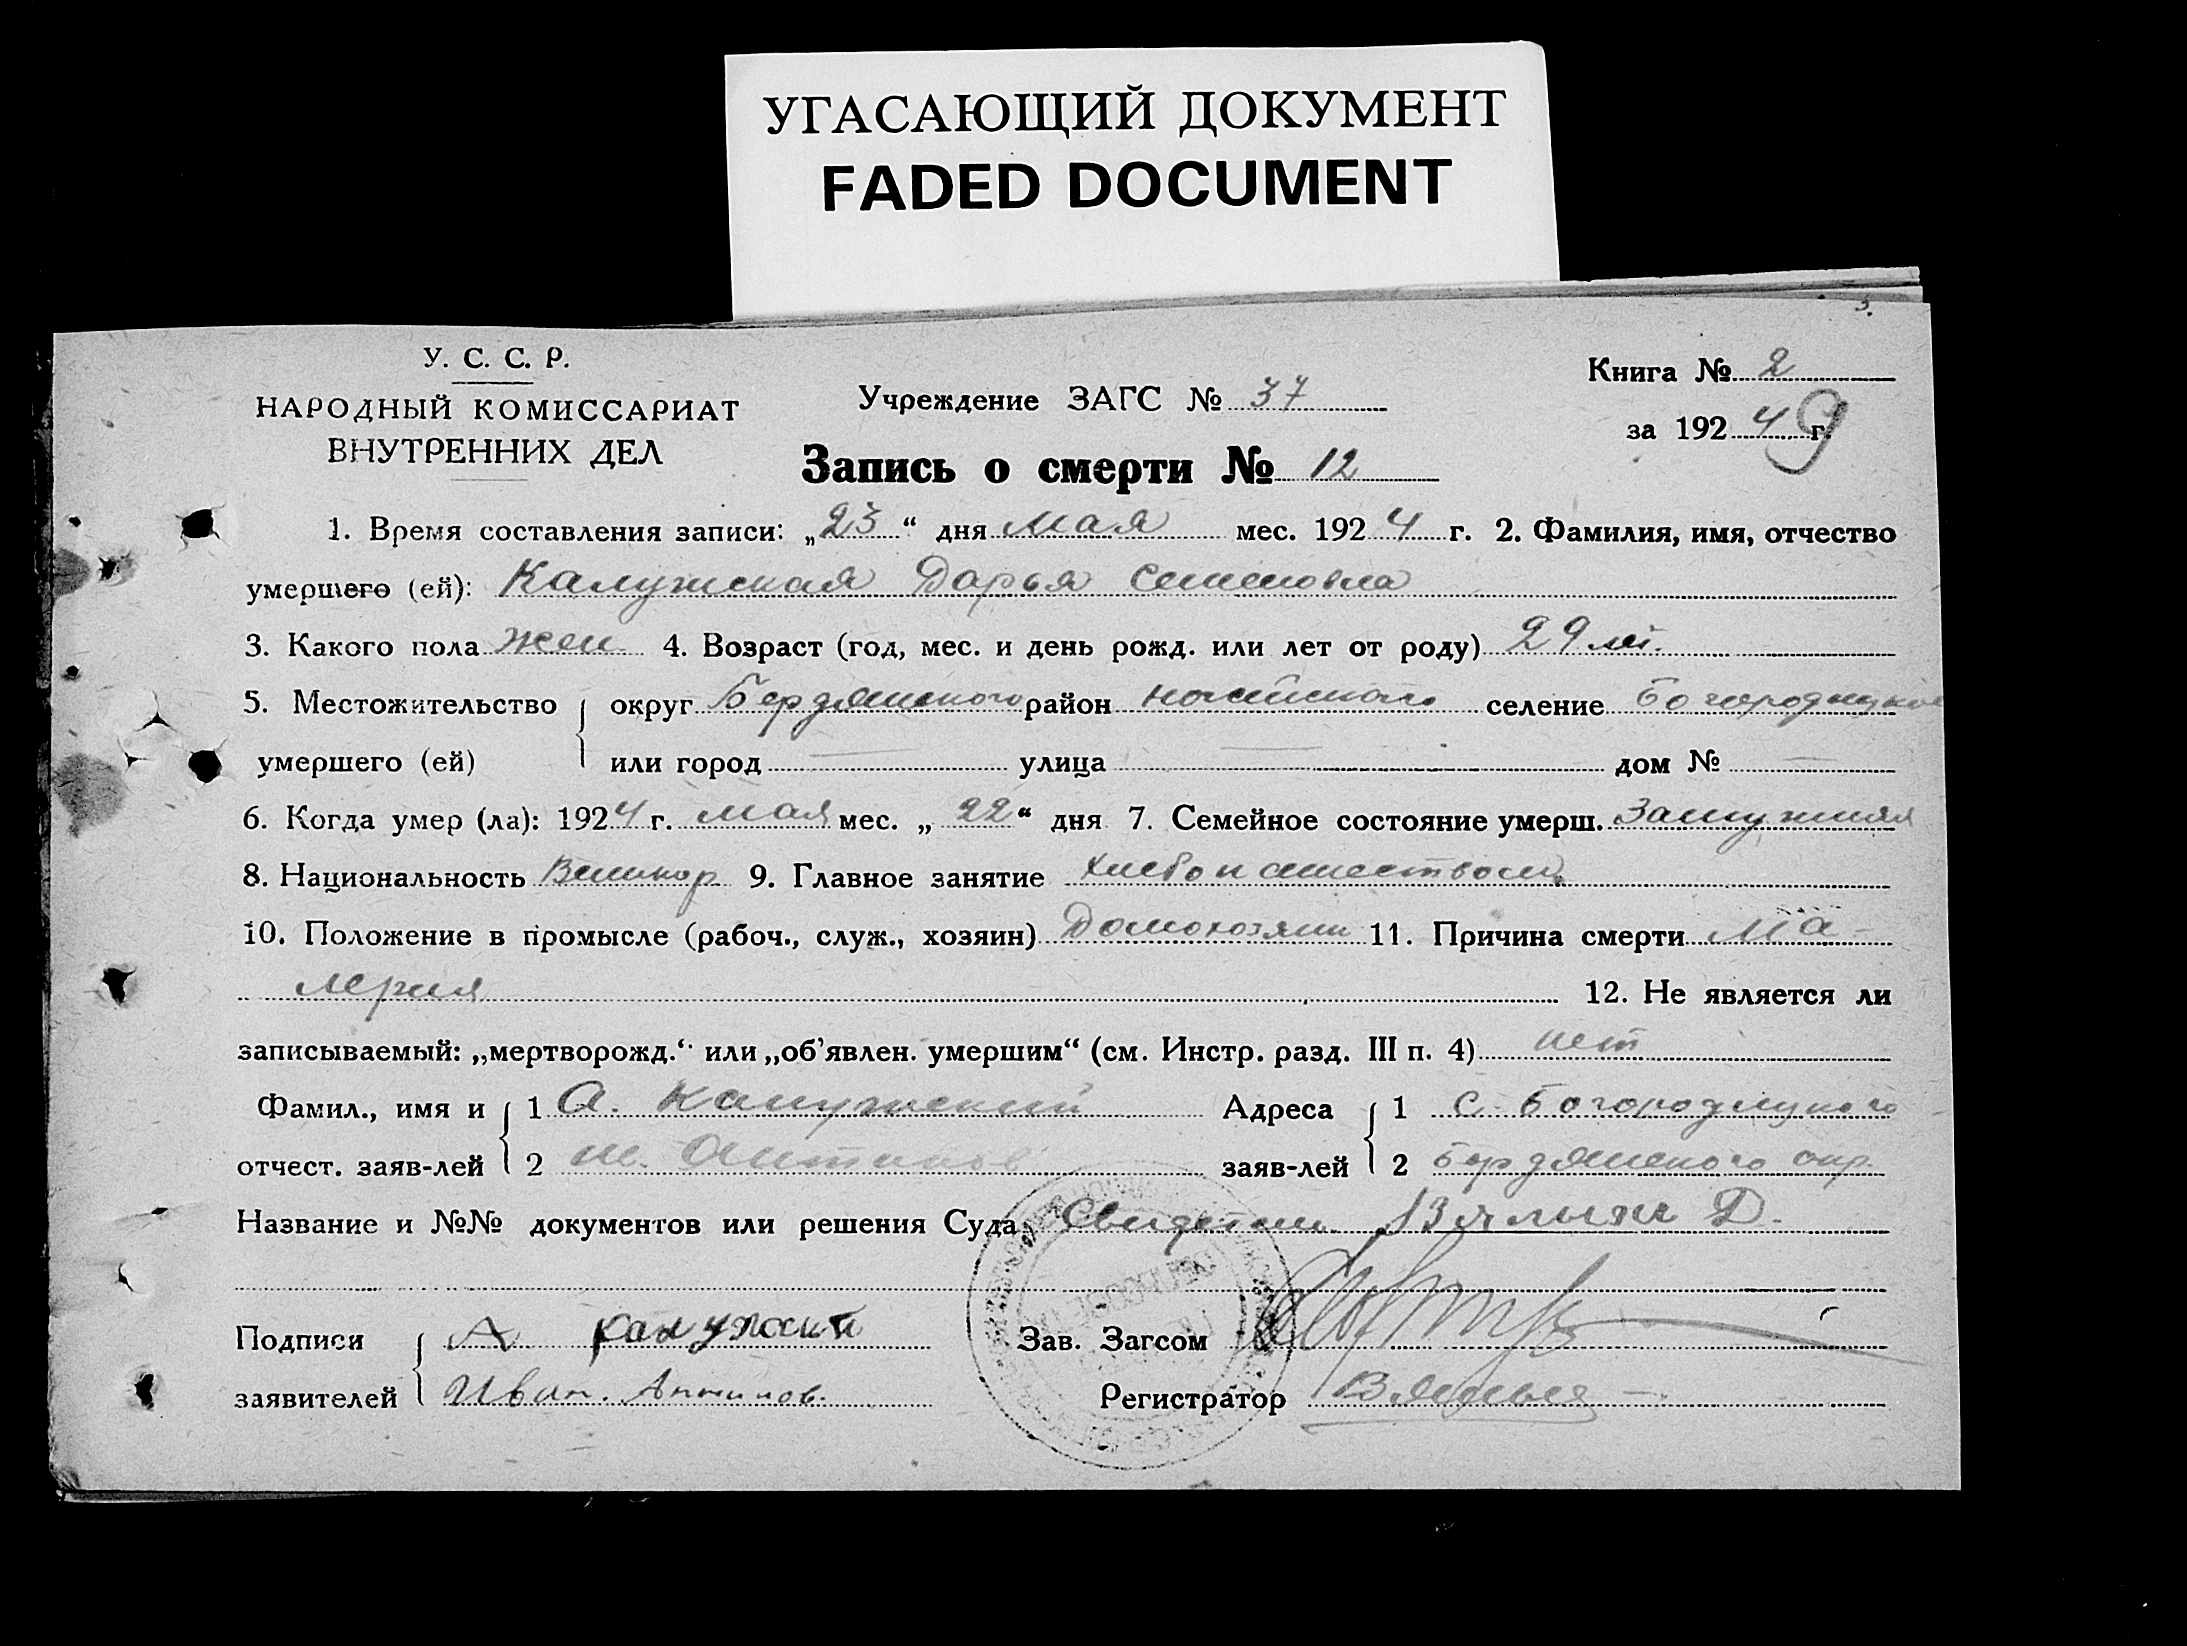 УГАСАЮЩИЙ ДОКУМЕНТ
FADED DOCUMENT
3.
У. С. С. Р.
НАРОДНЫЙ КОМИССАРИАТ
ВНУТРЕННИХ ДЕЛ
Учреждение ЗАГС № 37
Книга № 2
за 1924 г. 9
Запись о смерти № 12
1. Время составления записи: „23“ дня мая мес. 1924 г. 2. Фамилия, имя, отчество
умершего (ей): Калужская Дарья Семеновна
3. Какого пола жен. 4. Возраст (год, мес. и день рожд. или лет от роду) 29 лет.
5. Местожительство округ Бердянского район селение Богородицкое
умершего (ей) или город — улица — дом № —
6. Когда умер (ла): 1924 г. мая мес. „22“ дня 7. Семейное состояние умерш. Замужняя
8. Национальность Великор 9. Главное занятие Хлебопашеством
10. Положение в промысле (рабоч., служ., хозяин) Домохозяин 11. Причина смерти Ма-
лерия 12. Не является ли
записываемый: „мертворожд.“ или „об’явлен. умершим“ (см. Инстр. разд. III п. 4) нет
Фамил., имя и 1 А. Калужский Адреса 1 с. Богородицкого
отчест. заяв-лей 2 Антинов заяв-лей 2 Бердянского окр.
Название и №№ документов или решения Суда Свидетели Д.
Подписи А калужски Зав. Загсом
заявителей Иван. Антинов. Регистратор